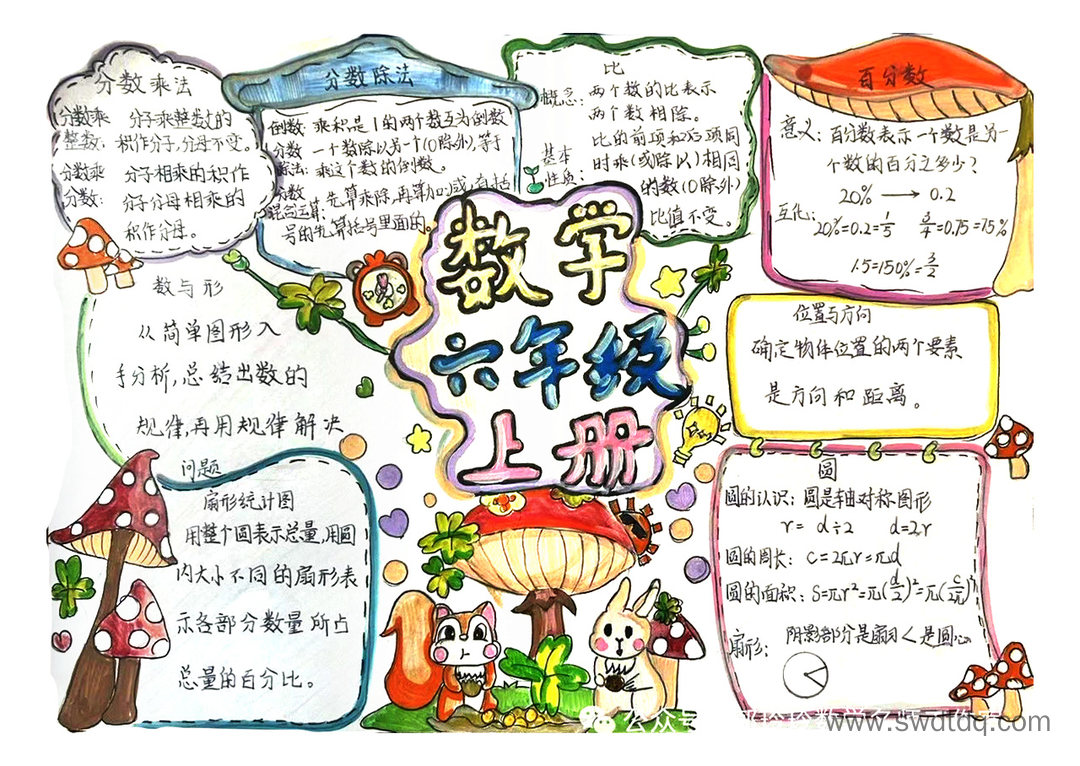 分数乘法
分数乘 分子乘整数的
整数: 积作分子,分母不变。
分数乘 分子相乘的积作
分数: 分子分母相乘的
积作分母。
分数除法
倒数: 乘积是1的两个数互为倒数
分数 一个数除以另一个(0除外),等于
除法: 乘这个数的倒数。
分数 先算乘除,再算加减,有括
混合运算: 号的先算括号里面的。
比
概念: 两个数的比表示
两个数相除。
基本 比的前项和后项同
性质: 时乘(或除以)相同
的数(0除外)
比值不变。
百分数
意义: 百分数表示一个数是另一
个数的百分之多少?
20% → 0.2
互化: 20%=0.2=1/5 3/4=0.75=75%
1.5=150%=3/2
数学
六年级
上册
数与形
从简单图形入
手分析,总结出数的
规律,再用规律解决
问题
位置与方向
确定物体位置的两个要素
是方向和距离。
扇形统计图
用整个圆表示总量,用圆
内大小不同的扇形表
示各部分数量所占
总量的百分比。
圆
圆的认识: 圆是轴对称图形
r= d÷2 d=2r
圆的周长: C=2πr=πd
圆的面积: S=πr²=π(d/2)²=π(C/2π)²
扇形: 阴影部分是扇形<是圆心
公众号
www.swdtdq.com